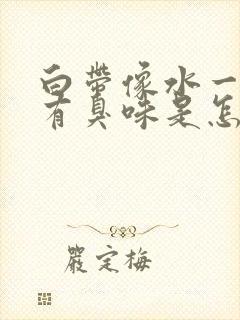 白带像水一
有臭味是怎
嚴定梅